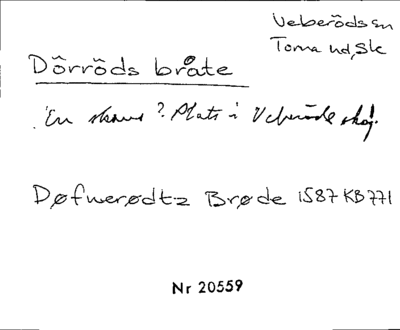 Veberöds sn
Torna hd, Sk
Dörröds bråte
En skans? Plats i Veberöds skog.
Døfwerødtz Brøde 1587 KB 771
Nr 20559